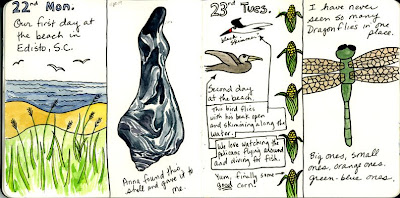 22nd Mon.
Our first day at
the beach in
Edisto, S.C.
Anna found this
shell and gave it to
me.
23rd Tues.
black
skimmer
Second day
at the beach.
This bird flies
with his beak open
and skimming along the
water.
We love watching the
pelicans flying around
and diving for fish.
Yum, finally some
good corn!
I have never
seen so many
Dragonflies in one
place.
Big ones, small
ones, orange ones,
green-blue ones.